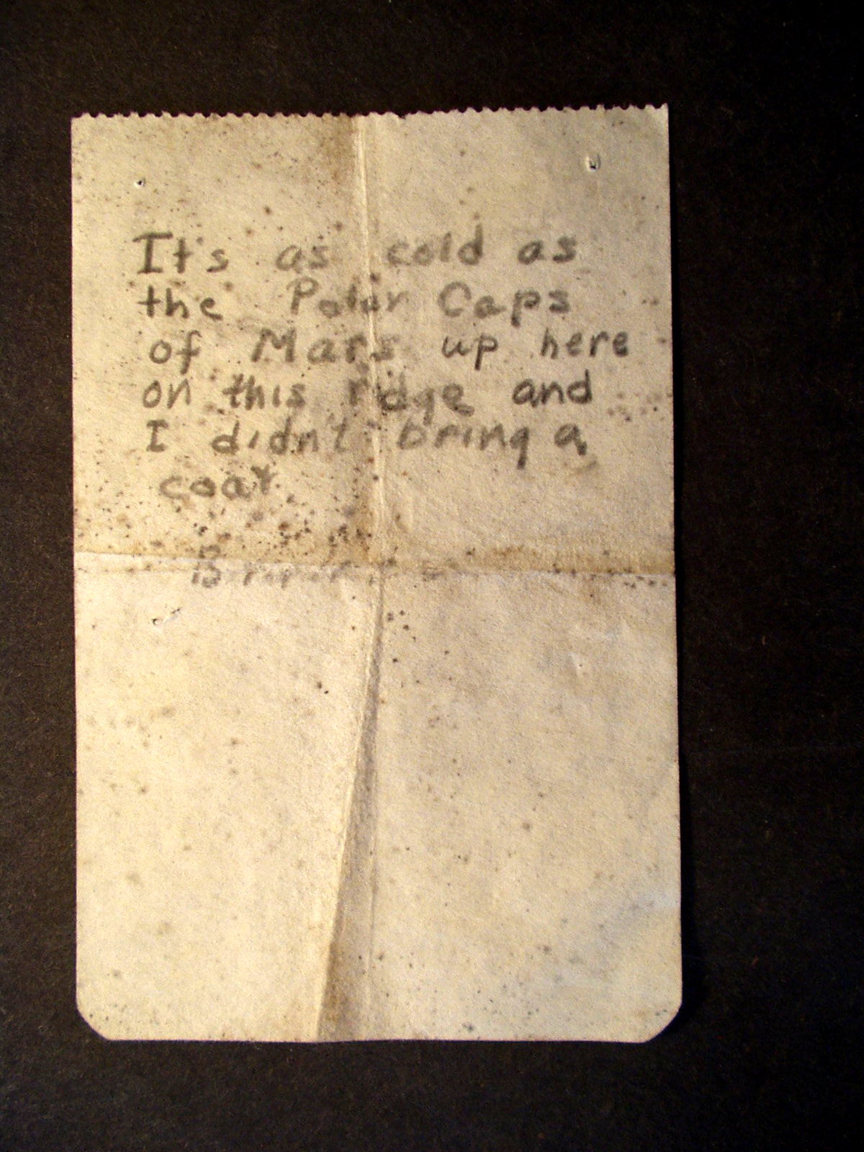 It's as cold as
the Polar Caps
of Mars up here
on this ridge and
I didn't bring a
coat